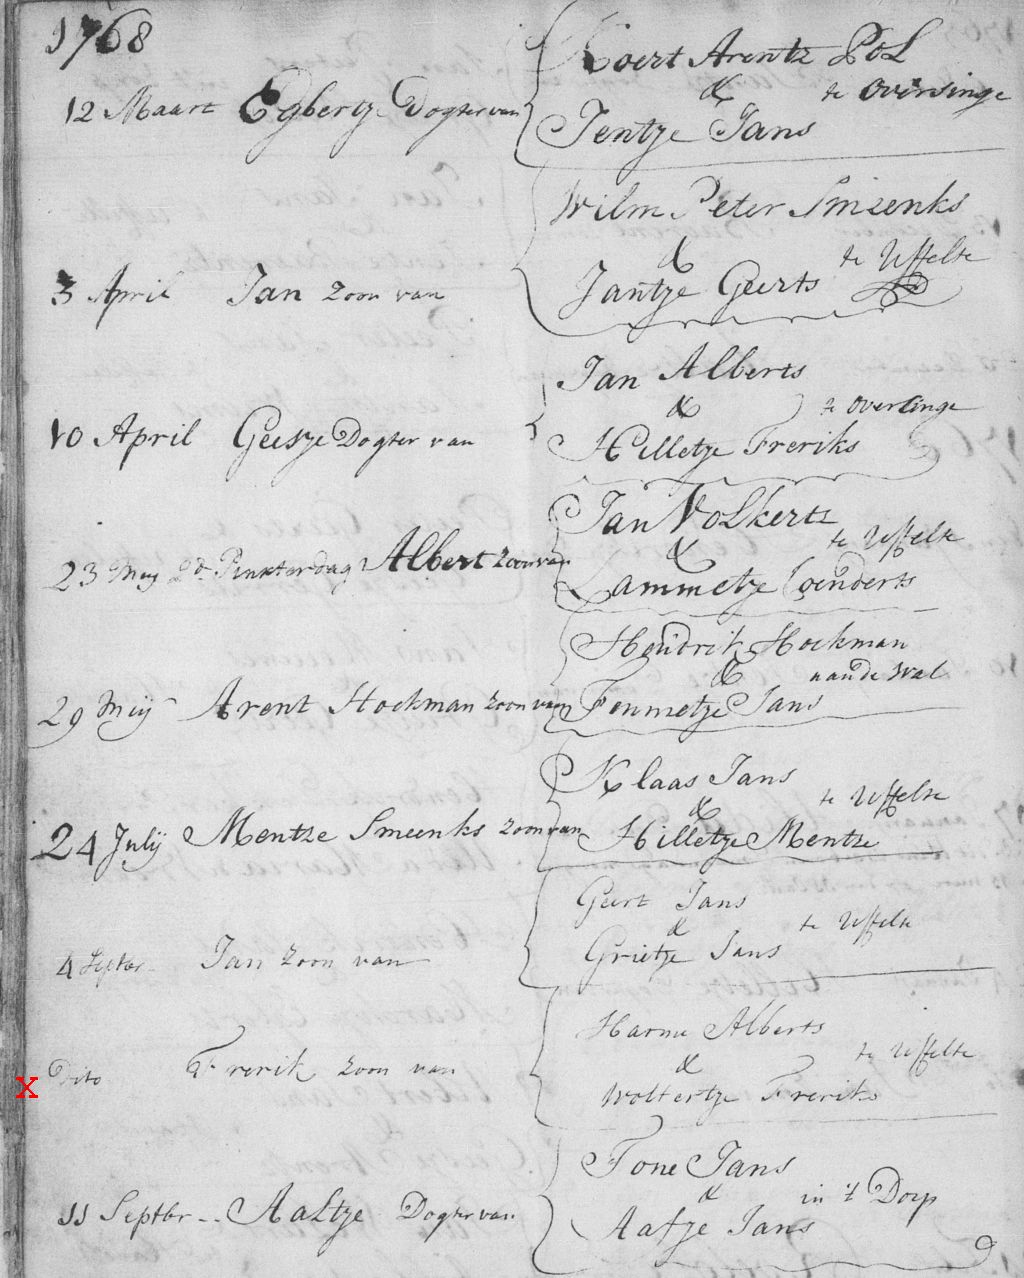 1768
Roert Arentz Pol
& te Oversinge
12 Maart Egbertje Dogter van
Jentje Jans
Wilm Peter Smeenks
& te Uffelte
3 April Jan zoon van
Jantje Geerts
Jan Alberts
& te Oversinge
10 April Geesje Dogter van
Hilletje Freriks
Jan Volkerts
& te Uffelte
23 Meij 2de Pinxterdag Albert zoon van
Lammetje Coenderts
Hendrik Hoekman
& aan de Wal
29 Meij Arent Hoekman zoon van
Femmetje Jans
Klaas Jans
& te Uffelte
24 Julij Mentze Smeenks zoon van
Hilletje Mentze
Geert Jans
& te Uffelte
4 Septbr Jan zoon van
Grietje Jans
Harme Alberts
& te Uffelte
X Dito Frerik zoon van
Woltertje Freriks
Tone Jans
& in 't Dorp
11 Septbr Aaltje Dogter van
Aafje Jans